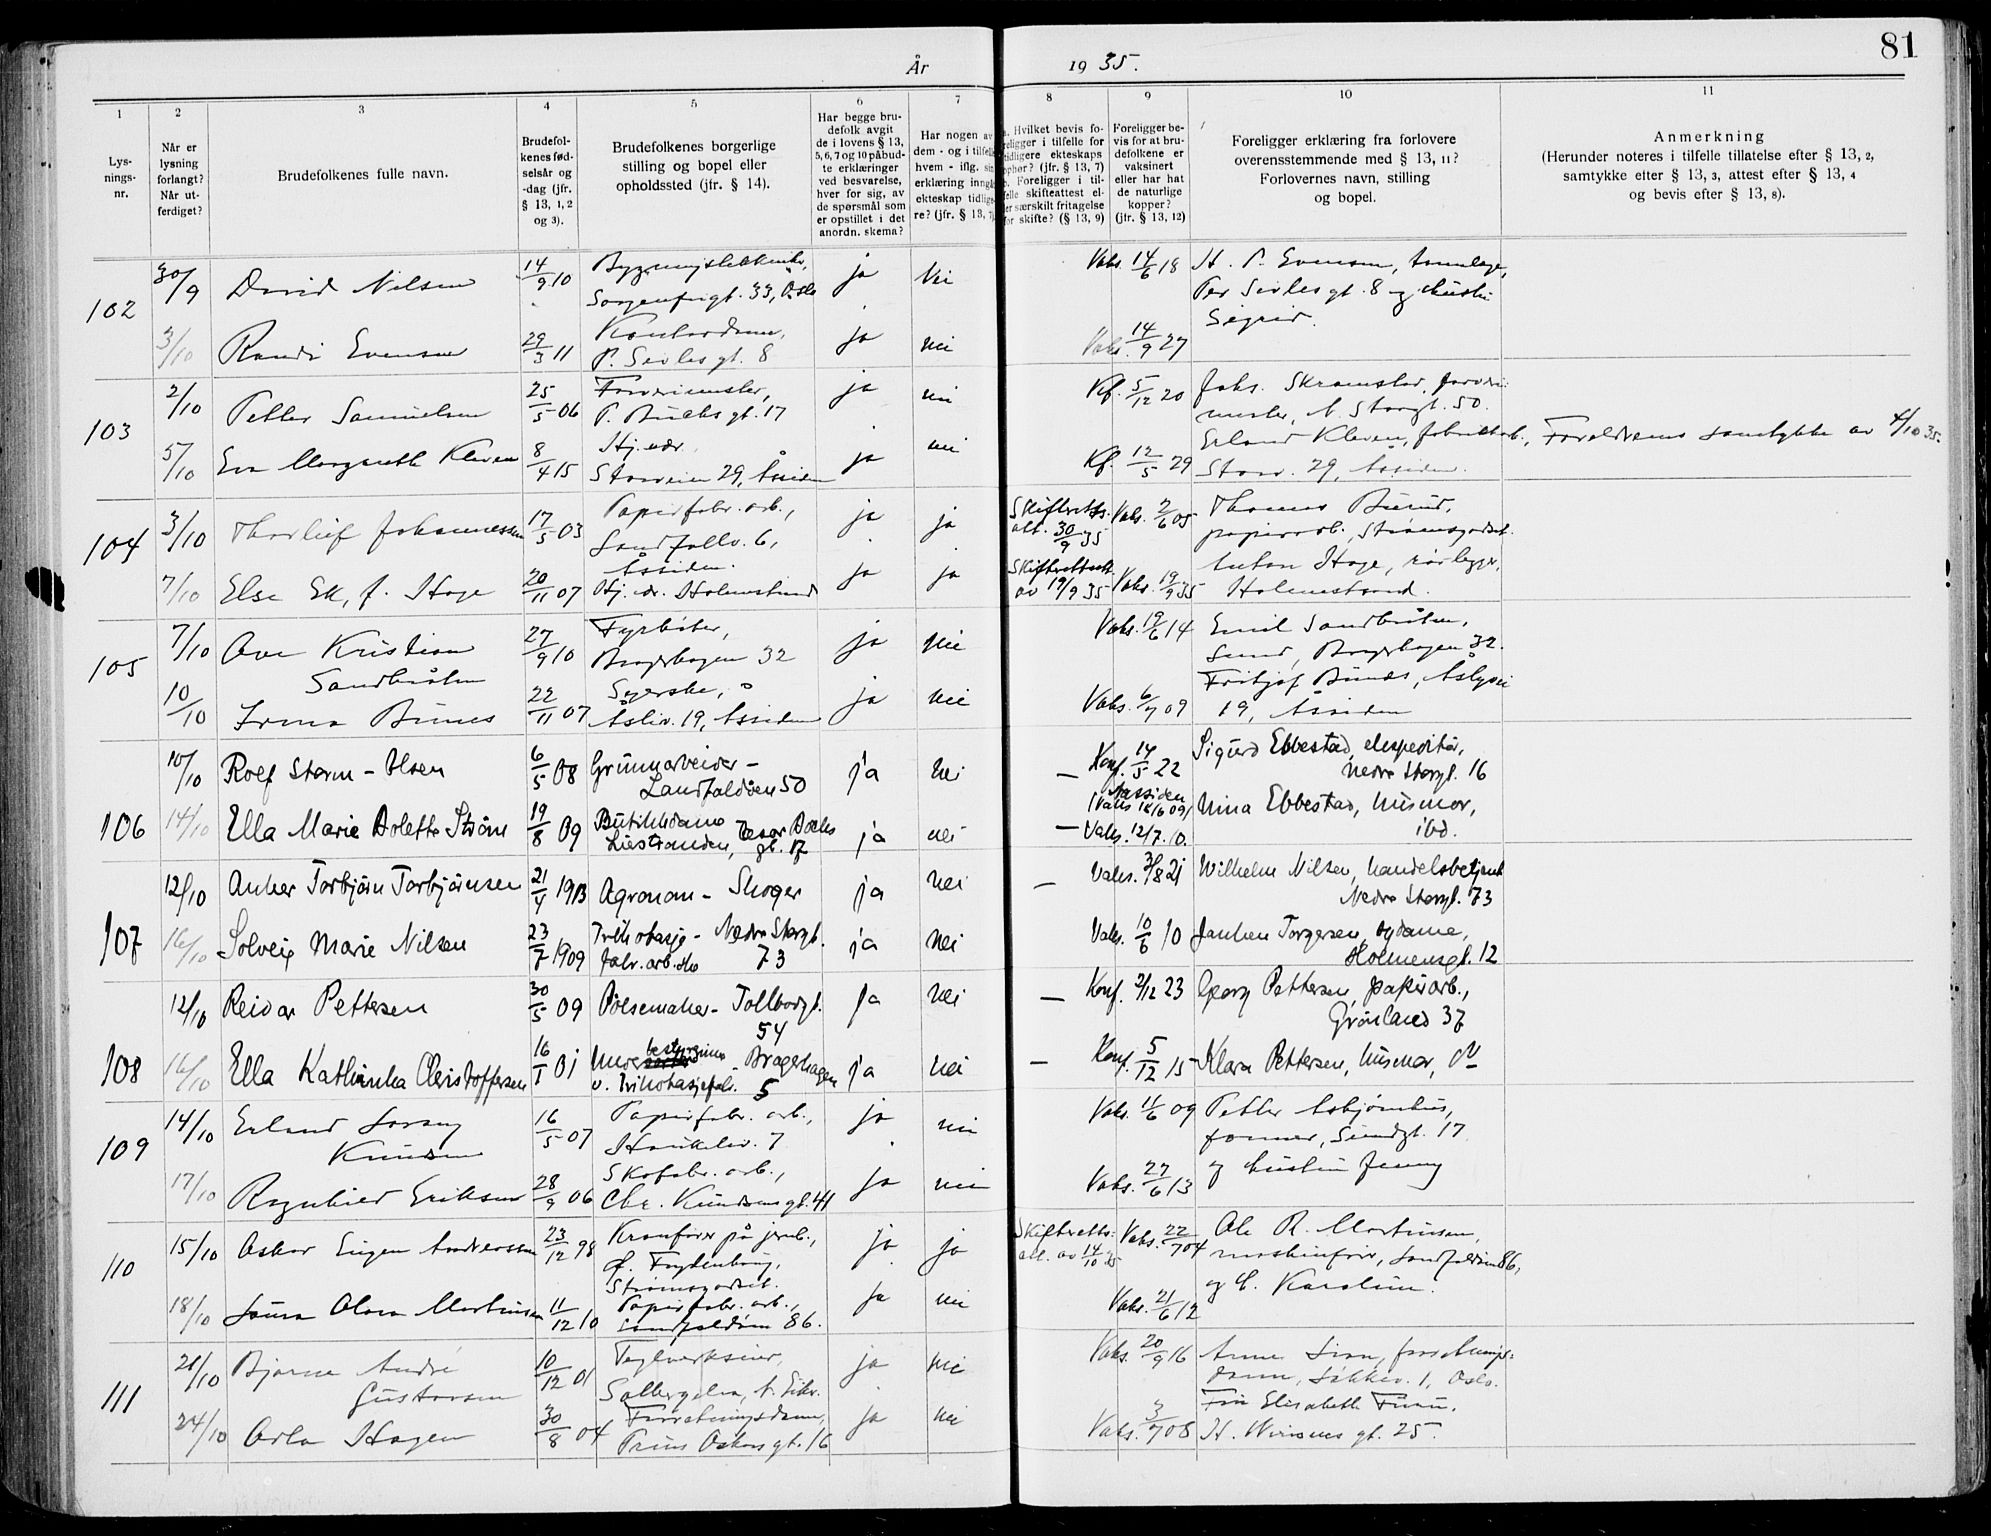 81
År 1935.
1 2 3 4 5 6 7 8 9 10 11
Lys-
nings-
nr.
Når er
lysning
forlangt?
Når ut-
ferdiget?
Brudefolkenes fulle navn.
Brudefol-
kenes fød-
selsår og
-dag (jfr.
§ 13, 1, 2
og 3).
Brudefolkenes borgerlige
stilling og bopel eller
opholdssted (jfr. § 14).
Har begge bru-
defolk avgit
de i lovens § 13,
5, 6, 7 og 10 påbud-
te erklæringer
ved besvarelse,
hver for sig, av
de spørsmål som
er opstillet i det
anordn. skema?
Har nogen av
dem - og i tilfelle
hvem - iflg. sin
erklæring inngå
ekteskap tidlige
re? (jfr. § 13, 7)
a. Hvilket bevis fo-
religger i tilfelle for
tidligere ekteskaps
ophør? (jfr. § 13, 7)
b. Foreligger i til-
felle skifteattest el-
ler særskilt fritagelse
for skifte? (§ 13, 9)
Foreligger be-
vis for at bru-
defolkene er
vaksinert
eller har hat
de naturlige
kopper?
(jfr. § 13, 12)
Foreligger erklæring fra forlovere
overensstemmende med § 13, 11?
Forlovernes navn, stilling
og bopel.
Anmerkning
(Herunder noteres i tilfelle tillatelse efter § 13, 2,
samtykke efter § 13, 3, attest efter § 13, 4
og bevis efter § 13, 8).
102 30/9 David Nilsen 14/9 10
Sorgenfrigt. 33, Oslo ja nei Vaks. 14/6 18 H. P. Evensen,
Per Sivlesgt. 8 og hustru
Sigrid.
3/10 Randi Evensen 29/3 11 Kontordame,
P. Sivlesgt. 8 ja nei Vaks. 14/9 27
103 2/10 Petter Samuelsen 25/5 06
P. Buchs gt. 17 ja nei Kf. 5/12 20 Johs. Skramstad,
N. Storgt. 50.
5/10 Eva Margareth Kleven 8/4 15 Hj. vær.
Storveien 29, Åssiden ja nei Kf. 12/5 29 Erland Kleven, fabrikkarb., Foreldrenes samtykke av 4/10 35.
Storv. 29, Åssiden.
104 3/10 Thorleif Johannessen 17/5 03 Papirfabr. arb.,
Landfallv. 6,
Åssiden. ja ja Skifteretts.
att. 30/9 35 Vaks. 2/6 05 Thomas Burud,
papirarb., Strømsgodset.
7/10 Else Ek, f. Hage 20/11 07 Hj. vr. Holmestrand ja ja Skifterettsatt.
av 19/9 35 Vaks. 19/9 35 Anton Hage, rørlegger,
Holmestrand.
105 7/10 Ove Kristian
Sandbråten 27/9 10 Fyrbøter,
Bragerhagen 32 ja nei Vaks. 19/6 14 Emil Sandbråten,
Bragerhagen 32.
10/10 Irma Bunes 22/11 07 Syerske,
Åsliv. 19, Åssiden ja nei Vaks. 6/7 09 Fritjof Bunes, Åslyvei
19, Åssiden
106 10/10 Rolf Storm-Olsen 6/5 08 Grunnarbeider -
Landfaldøen 50 ja nei — Konf. 14/5 22
Aassiden Sigurd Ebbestad, ekspeditør,
Nedre Storgt. 16
14/10 Ella Marie Bolette Strøm 19/8 09 Butikkdame
Liestranden, gt. 17 ja nei (Vaks 18/6 09)
— Vaks. 12/7. 10. Nina Ebbestad, husmor,
ibd.
107 12/10 Anker Torbjørn Torbjørnsen 21/4 1913 Agronom - Skoger ja nei — Vaks. 3/8 21 Wilhelm Nilsen, handelsbetjent
Nedre Storgt. 73
16/10 Solveig Marie Nilsen 23/7 1909 Trikotasje - Nedre Storgt.
fabr. arb.ske 73 ja nei Vaks. 10/6 10 Janken Torgersen, sydame,
Holmensgt. 12
108 12/10 Reidar Pettersen 30/5 09 Pølsemaker - Tollbodgt.
54 ja nei — Konf. 2/12 23 Georg Pettersen, papirarb.,
Grønland 37
16/10 Ella Kathinka Christoffersen 16/1 01 Underbestyrerinne - Bragerhagen
v. Trikotasjefabr. 5 ja nei — Konf. 5/12 15 Klara Pettersen, husmor, do
109 14/10 Erland Lorang
Knudsen 16/5 07 Papirfabr. arb.,
Haukeliv. 7 ja nei Vaks. 11/6 09 Petter Asbjørnhus,
former, Sundgt. 17
og hustru Jenny
17/10 Ragnhild Eriksen 28/9 06 Skofabr. arb.,
Chr. Knudsens gt. 41 ja nei Vaks. 27/6 13
110 15/10 Oskar Eugen Andreassen 23/12 98 Kranfører på jernb.,
Ø. Frydenberg,
Strømsgodset. ja ja Skifteretts-
att. av 14/10 35 Vaks. 22/7 04 Ole R. Martinsen,
maskinfører, Landfaldøen 86,
og h. Karoline.
18/10 Laura Olava Martinsen 11/12 10 Papirfabr. arb.,
Landfaldøen 86. ja nei Vaks. 21/6 12
111 21/10 Bjarne André
Gustavsen 10/12 01 Teglverkseier,
Solbergelva, N. Eiker. ja nei Vaks. 20/9 16 Anna Lien, forretnings-
dame, Løkkev. 1, Oslo.
24/10 Asla Hagen 30/8 04 Forretningsdame,
Prins Oskars gt. 16 ja nei Vaks. 3/7 08 Frk Elisabeth Furu,
H. Wiriksens gt. 25.